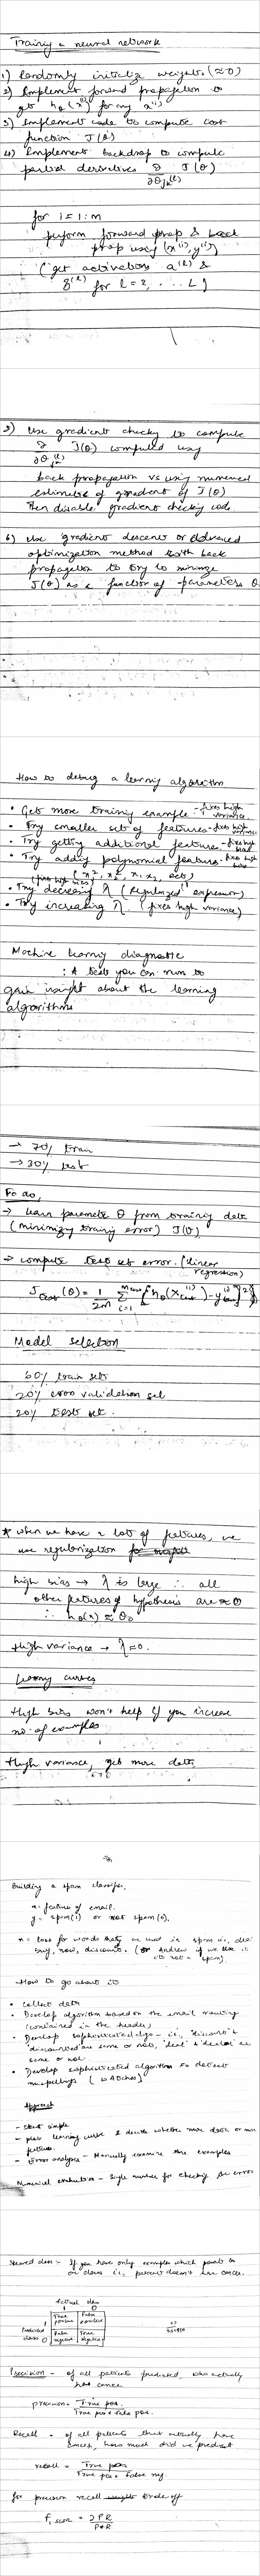 Training a neural network
1) Randomly initialize weights (≈0)
2) Implement forward propagation to
get hθ(x⁽ⁱ⁾) for any x⁽ⁱ⁾
3) Implement code to compute cost
function J(θ)
4) Implement backdrop to compute
partial derivatives ∂/∂θjk⁽ˡ⁾ J(θ)
for i = 1:m
perform forward prop & back
prop using (x⁽ⁱ⁾, y⁽ⁱ⁾)
(get activations a⁽ˡ⁾ &
δ⁽ˡ⁾ for l = 2, ... L)
5) Use gradient checking to compute
∂/∂θjk⁽ˡ⁾ J(θ) computed using
back propagation vs using numerical
estimate of gradient of J(θ)
Then disable gradient checking code
6) Use gradient descent or advanced
optimization method with back
propagation to try to minimize
J(θ) as a function of parameters θ
How to debug a learning algorithm
• Get more training example - fixes high variance
• Try smaller set of features - fixes high variance
• Try getting additional features - fixes high bias
• Try adding polynomial features - fixes high bias
(x₁², x₂², x₁x₂, etc)
• Try decreasing λ (Regularized expression)
(fixes high bias)
• Try increasing λ. (fixes high variance)
Machine learning diagnostic
: A test you can run to
gain insight about the learning
algorithm
→ 70% train
→ 30% test
To do,
→ learn parameter θ from training data
(minimizing training error) J(θ)
→ compute test set error. (linear
regression)
Jtest(θ) = 1/2m Σ i=1 mtest [hθ(xtest⁽ⁱ⁾) - ytest⁽ⁱ⁾]²
Model selection
60% train set
20% cross validation set
20% test set.
* when we have a lot of features, we
use regularization
high bias → λ is large ∴ all
other features of hypothesis are ≈ 0
∴ hθ(x) ≈ θ₀
High variance → λ ≈ 0.
Learning curves
High bias won't help if you increase
no. of examples
High variance, get more data
Building a spam classifier.
x = features of email.
y = spam(1) or not spam(0).
x = look for words that are used in spam ie, deal
buy, now, discount. (or Andrew if we think it
is not a spam).
How to go about it
• Collect data
• Develop algorithm based on the email routing
(contained in the header)
• Develop sophisticated algo - i.e, 'discount' &
'discounted' are same or not, 'deal' & 'dealer' are
same or not.
• Develop sophisticated algorithm to detect
misspellings (w4tches)
Approach
- Start simple
- plot learning curve & decide whether more data or more
features.
- Error analysis - Manually examine the examples
Numerical evaluation - Single number for checking the error
Skewed class :- If you have only examples which point to
one class ie, patient doesn't have cancer.
Actual class
1 0
Predicted class
1 True positive False positive
0 False negative True negative
Precision - of all patients predicted, who actually
has cancer
precision = True pos. / True pos + false pos.
Recall - of all patients that actually have
cancer, how much did we predict
recall = True pos / True pos + False neg
for precision recall trade off
F₁ score = 2PR / P+R